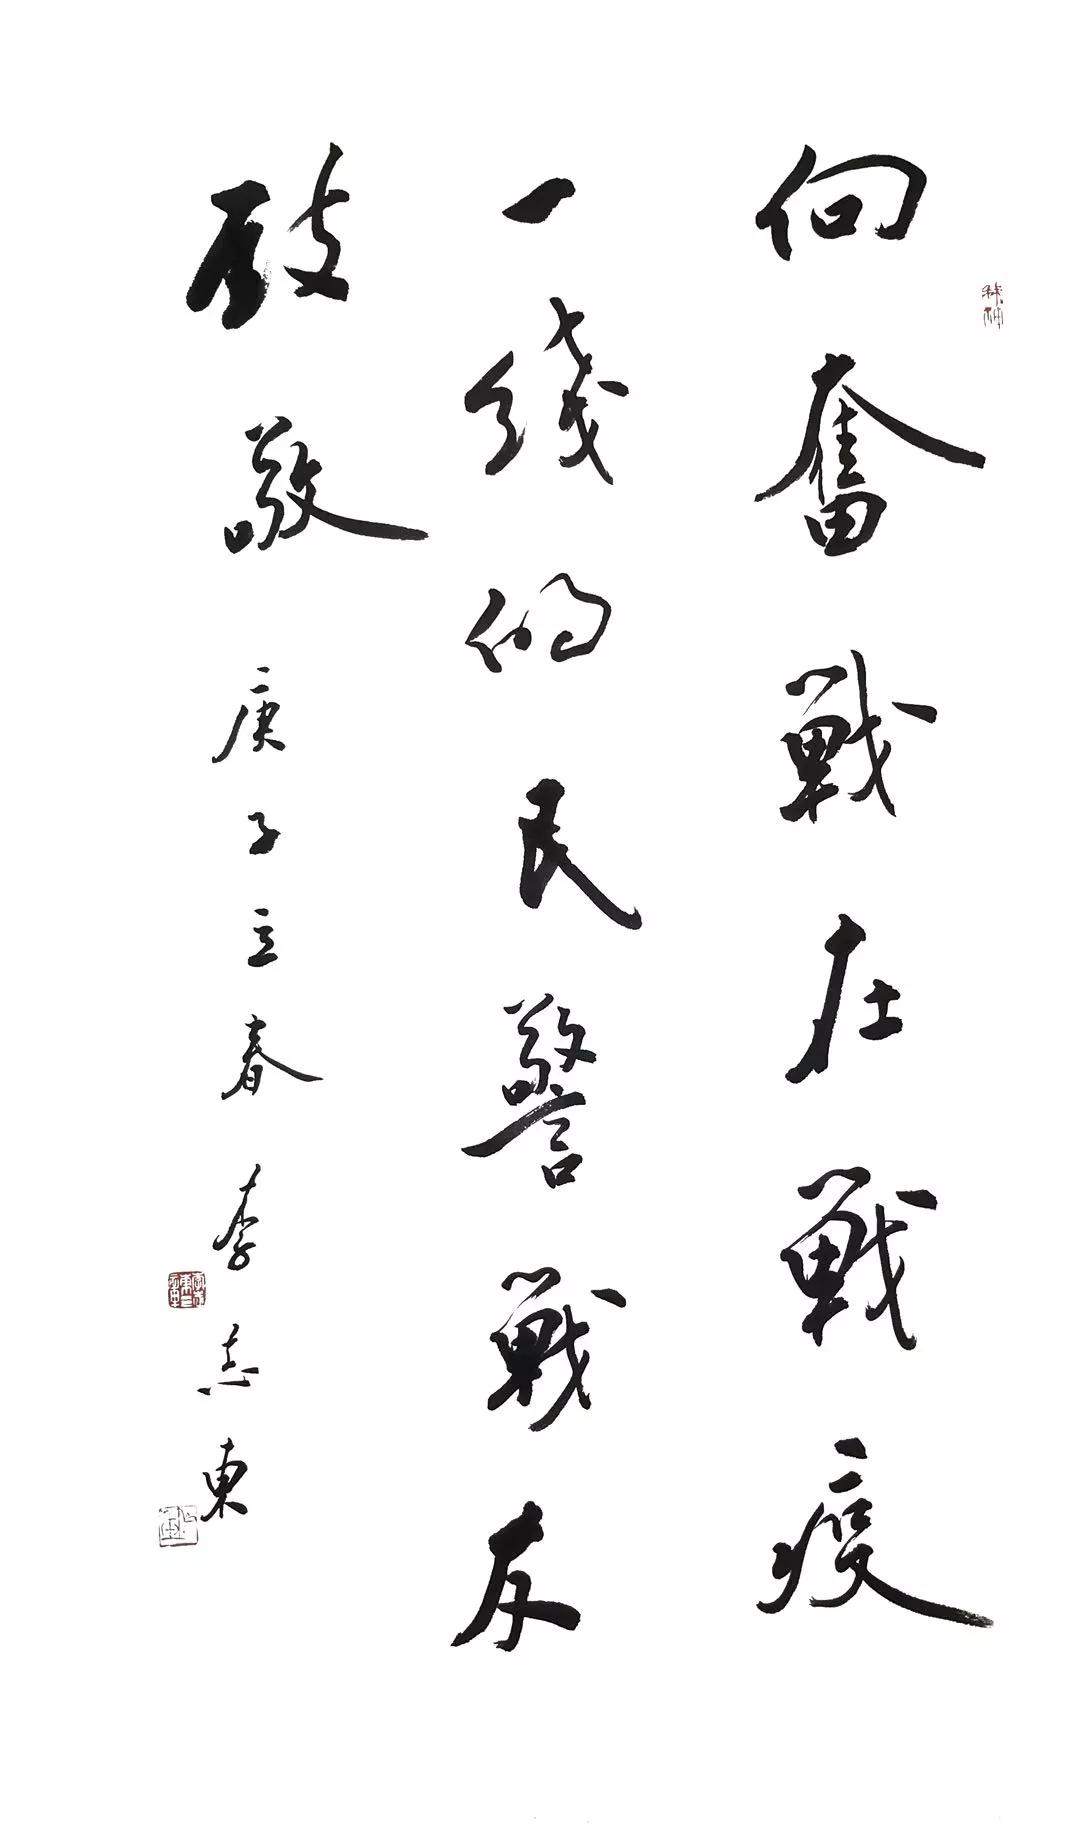 向奮戰在戰疫
一綫的民警戰友
致敬 庚子立春 李志東